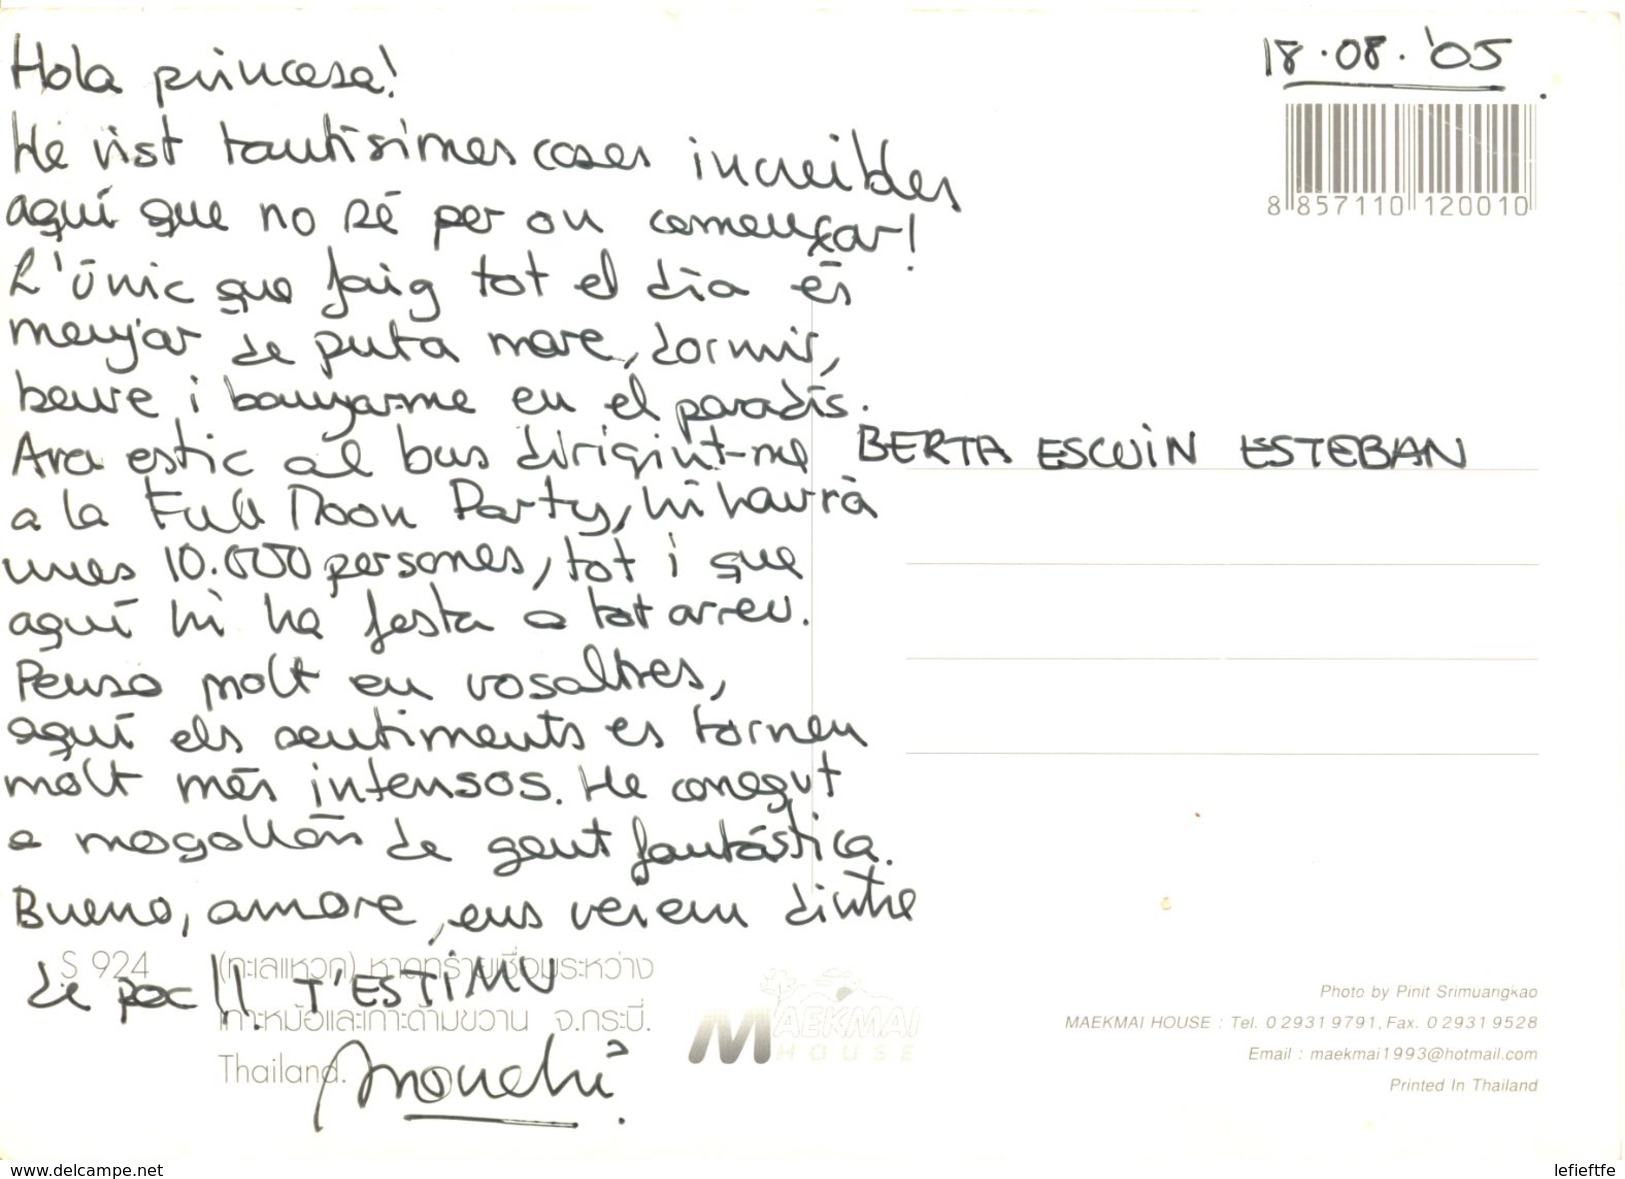 18.08.'05
Hola princesa!
He vist tantísimes coses increibles
aquí que no sé per on començar!
L'únic que faig tot el dia és
menjar de puta mare, dormir,
beure i banyarme en el paradís.
Ara estic al bus dirigint-me
a la Full Moon Party, hi haurà
unes 10.000 persones, tot i que
aquí hi ha festa a tot arreu.
Penso molt en vosaltres,
aquí els sentiments es tornen
molt més intensos. He conegut
a mogollón de gent fantástica.
Bueno, amore, ens veiem dintre
de poc!! T'ESTIMU
BERTA ESCUIN ESTEBAN
8 857110 120010
S 924
(ทะเลแหวก) หาดทรายเชื่อมระหว่าง
เกาะหม้อและเกาะด้ามขวาน จ.กระบี่.
Thailand.
MAEKMAI
HOUSE
Photo by Pinit Srimuangkao
MAEKMAI HOUSE : Tel. 0 2931 9791, Fax. 0 2931 9528
Email : maekmai1993@hotmail.com
Printed In Thailand
www.delcampe.net
lefieftfe